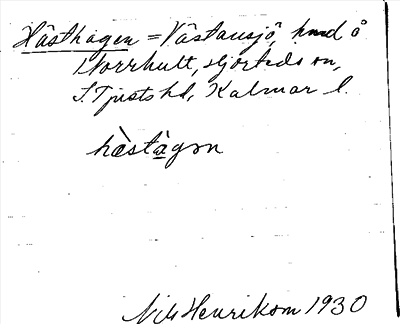 Hästhagen = Västansjö, hmd å
Norrhult, Hjorteds sn,
S. Tjusts hd, Kalmar l.
hàstàgən
Nils Henrikson 1930